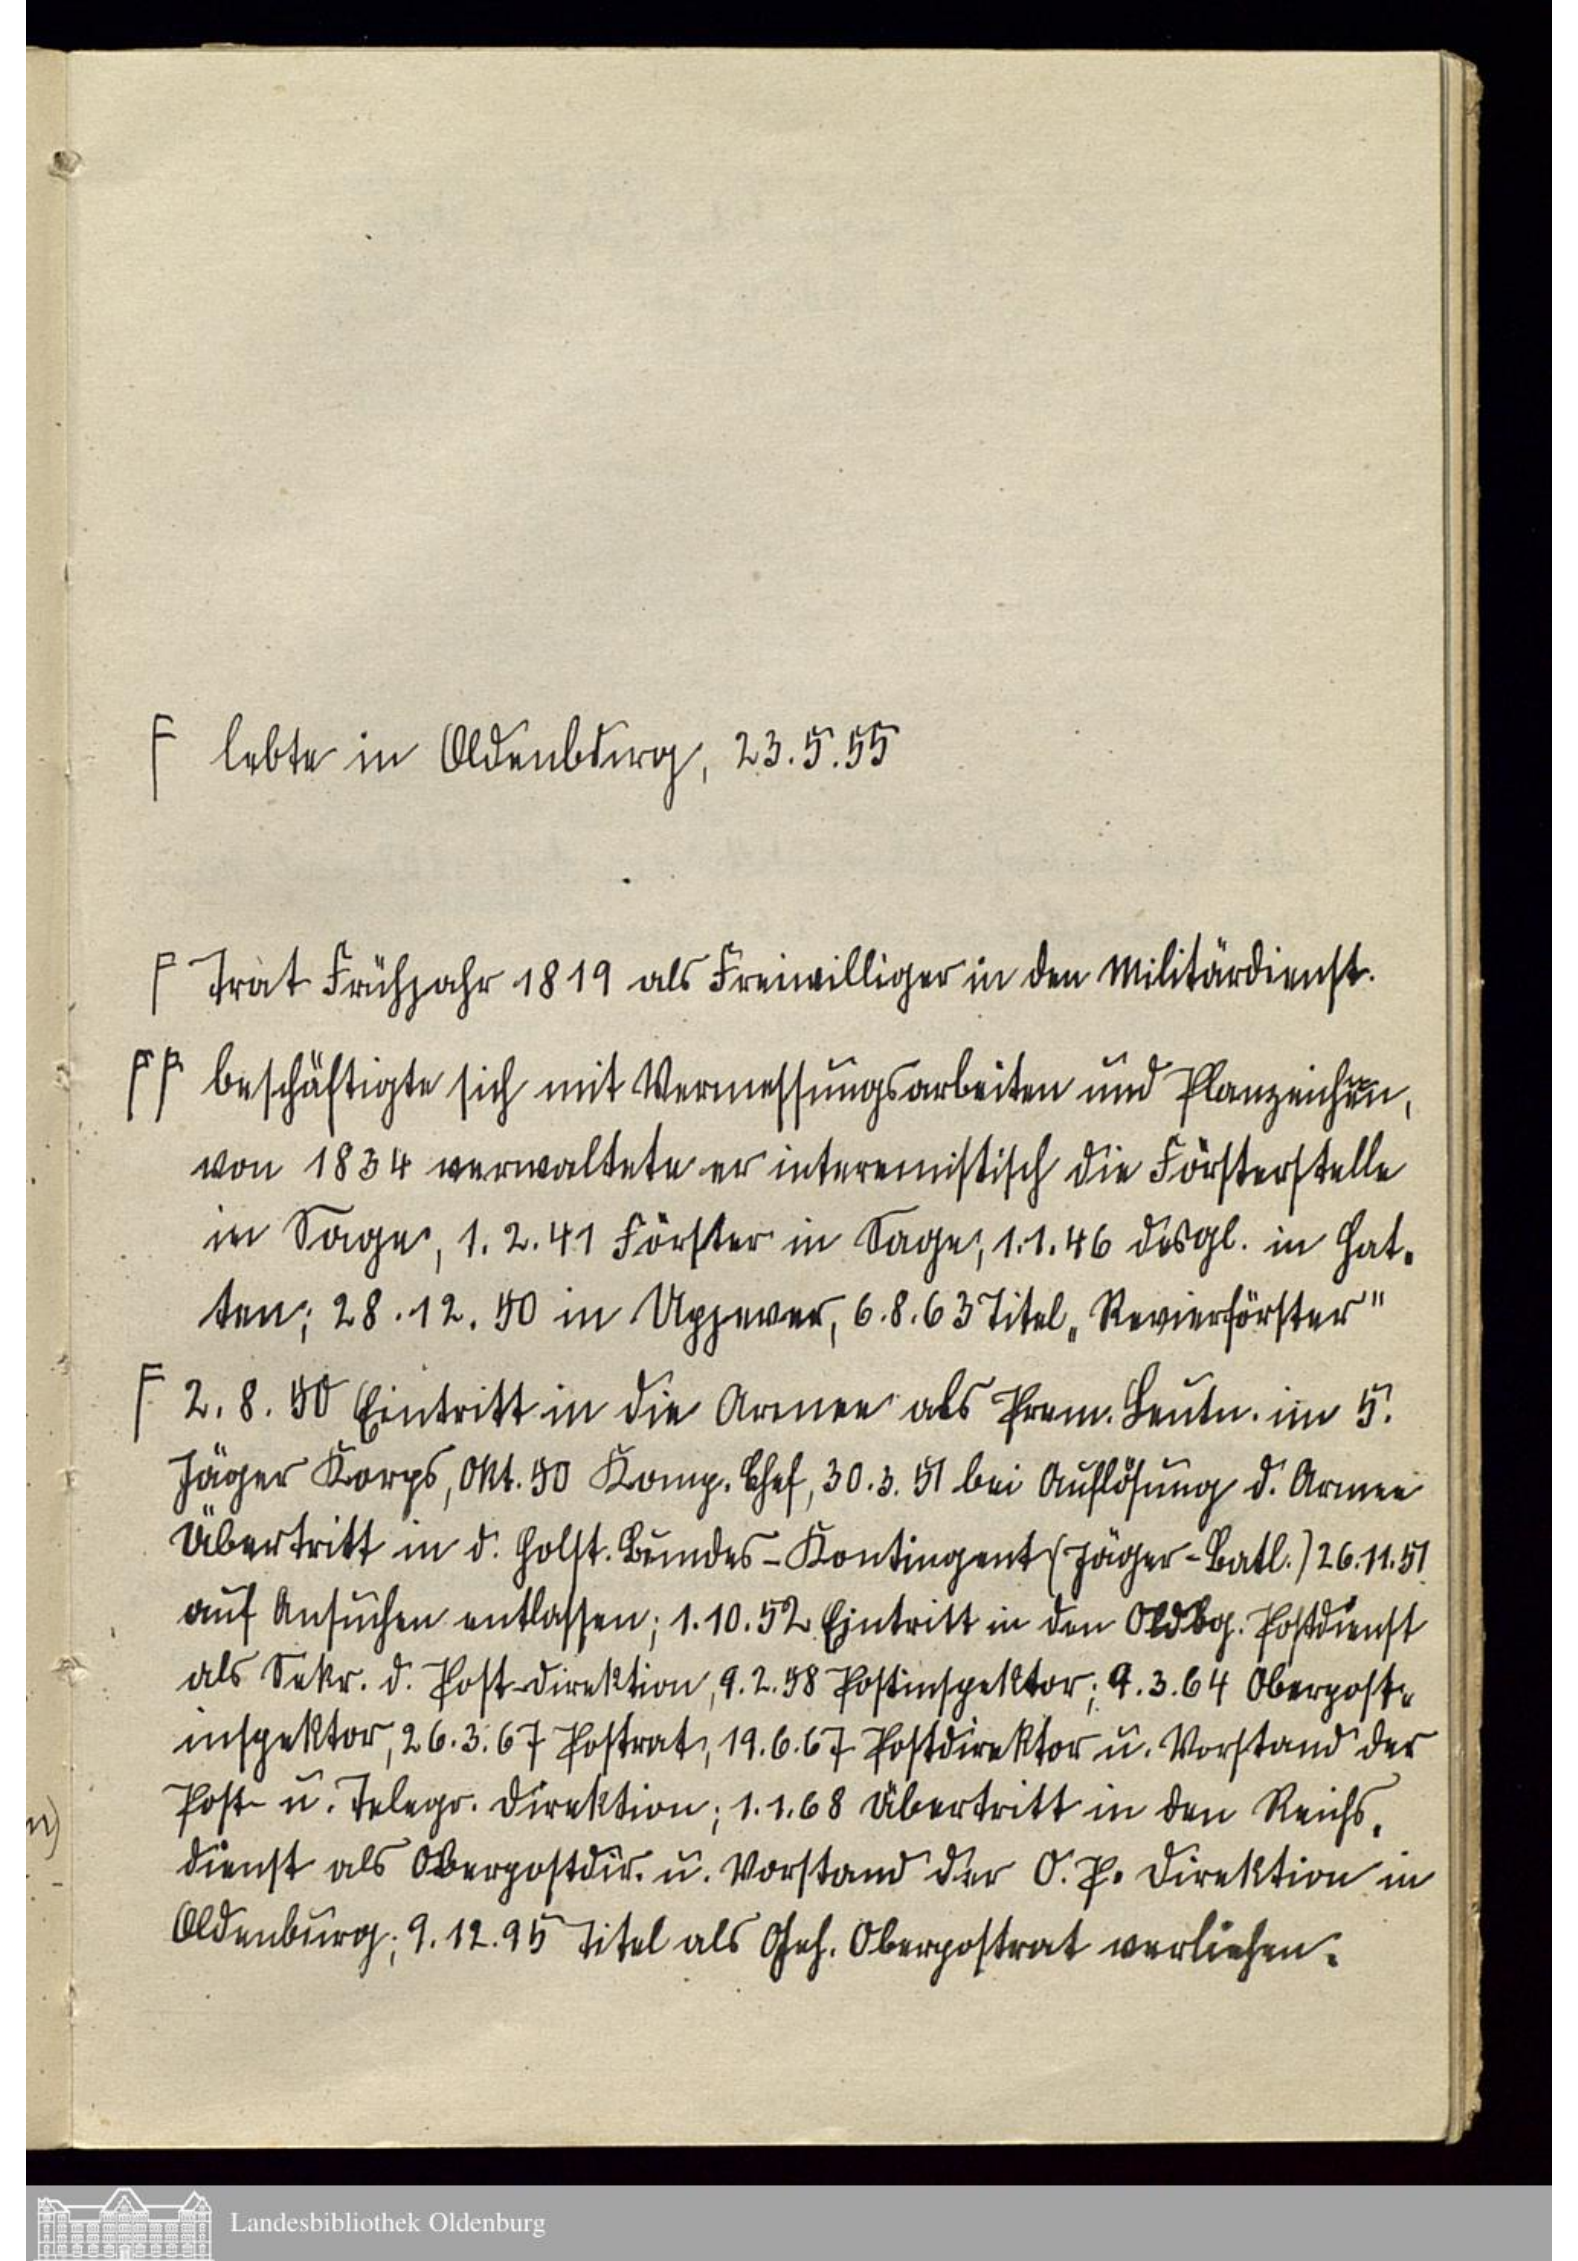 F lebte in Oldenburg, 23.5.55
F Trat Frühjahr 1819 als Freiwilliger in den Militärdienst.
FF beschäftigte sich mit Vermessungsarbeiten und Planzeichnen,
von 1834 verwaltete er interemistisch die Försterstelle
in Sage, 1.2.41 Förster in Sage, 1.1.46 desgl. in Hat-
ten; 28.12.50 in Upjever, 6.8.63 Titel „Revierförster"
F 2.8.50 Eintritt in die Armee als Prem. Leutn. im 5.
Jäger Korps, Okt. 50 Komp. Chef, 30.3.51 bei Auflösung d. Armee
Übertritt in d. Holst. Bundes-Kontingent (Jäger-Batl.) 26.11.51
auf Ansuchen entlassen; 1.10.52 Eintritt in den Oldbg. Postdienst
als Sekr. d. Post-direktion, 9.2.58 Postinspektor; 9.3.64 Oberpost-
inspektor, 26.3.67 Postrat, 19.6.67 Postdirektor u. Vorstand der
Post- u. Telegr. direktion; 1.1.68 Übertritt in den Reichs-
dienst als Oberpostdir. u. Vorstand der O. P. direktion in
Oldenburg; 9.12.95 Titel als Geh. Oberpostrat verliehen.
Landesbibliothek Oldenburg